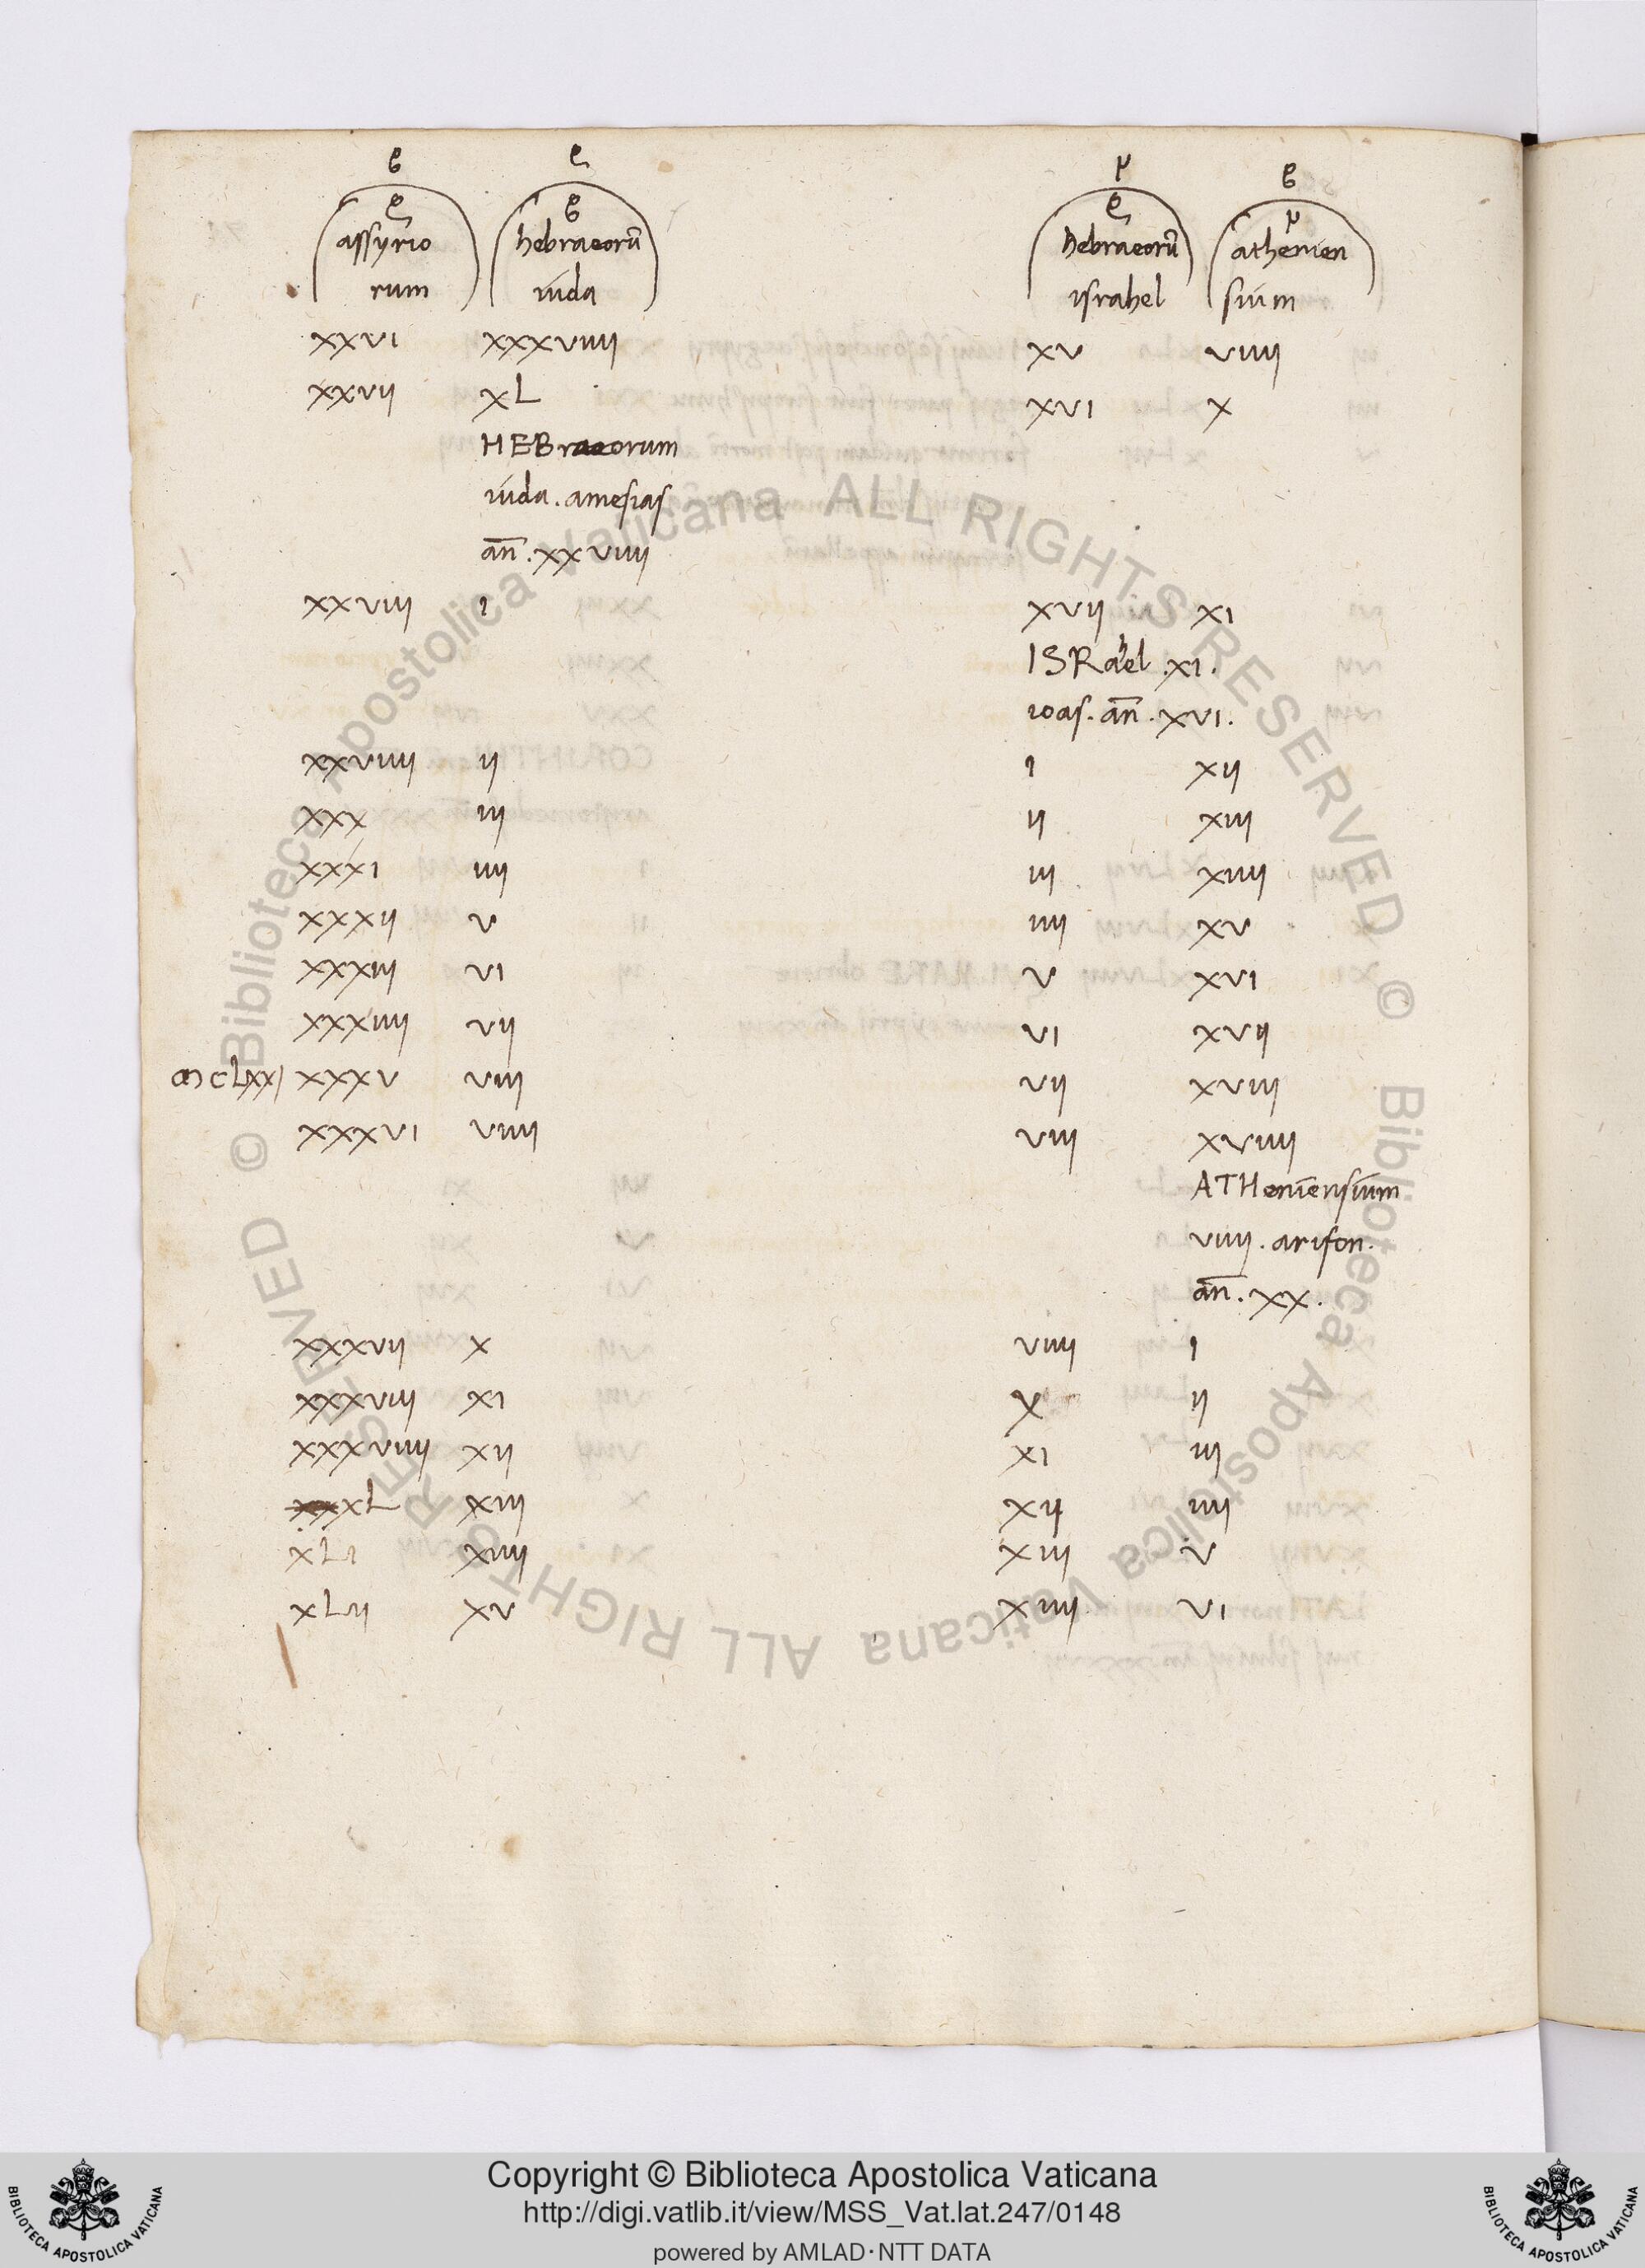 assyrio hebraeorū hebraeorū athenien
rum iuda israhel sium
xxvi xxxviiii xv viiii
xxvii xL xvi x
HEBraeorum
iuda. amesias
an̄. xxviiii
xxviii i xvii xi
ISRahel .xi.
ioas. an̄. xvi.
xxviiii ii i xii
xxx iii ii xiii
xxxi iiii iii xiiii
xxxii v iiii xv
xxxiii vi v xvi
xxxiiii vii vi xvii
ↀcLxxi xxxv viii vii xviii
xxxvi viiii viii xviiii
ATHeniensium
viiii. arifon.
an̄. xx.
xxxvii x viiii i
xxxviii xi x ii
xxxviiii xii xi iii
xL xiii xii iiii
xLi xiiii xiii v
xLii xv xiiii vi
© Biblioteca Apostolica Vaticana ALL RIGHTS RESERVED © Biblioteca Apostolica Vaticana ALL RIGHTS RESERVED
BIBLIOTECA APOSTOLICA VATICANA
Copyright © Biblioteca Apostolica Vaticana
http://digi.vatlib.it/view/MSS_Vat.lat.247/0148
powered by AMLAD·NTT DATA
BIBLIOTECA APOSTOLICA VATICANA